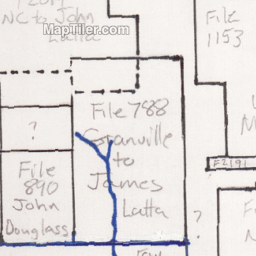 NC to John
Latta
MapTiler.com
File
1153
File 788
Granville
to
James
Latta
?
File
890
John
Douglass
F2191
?